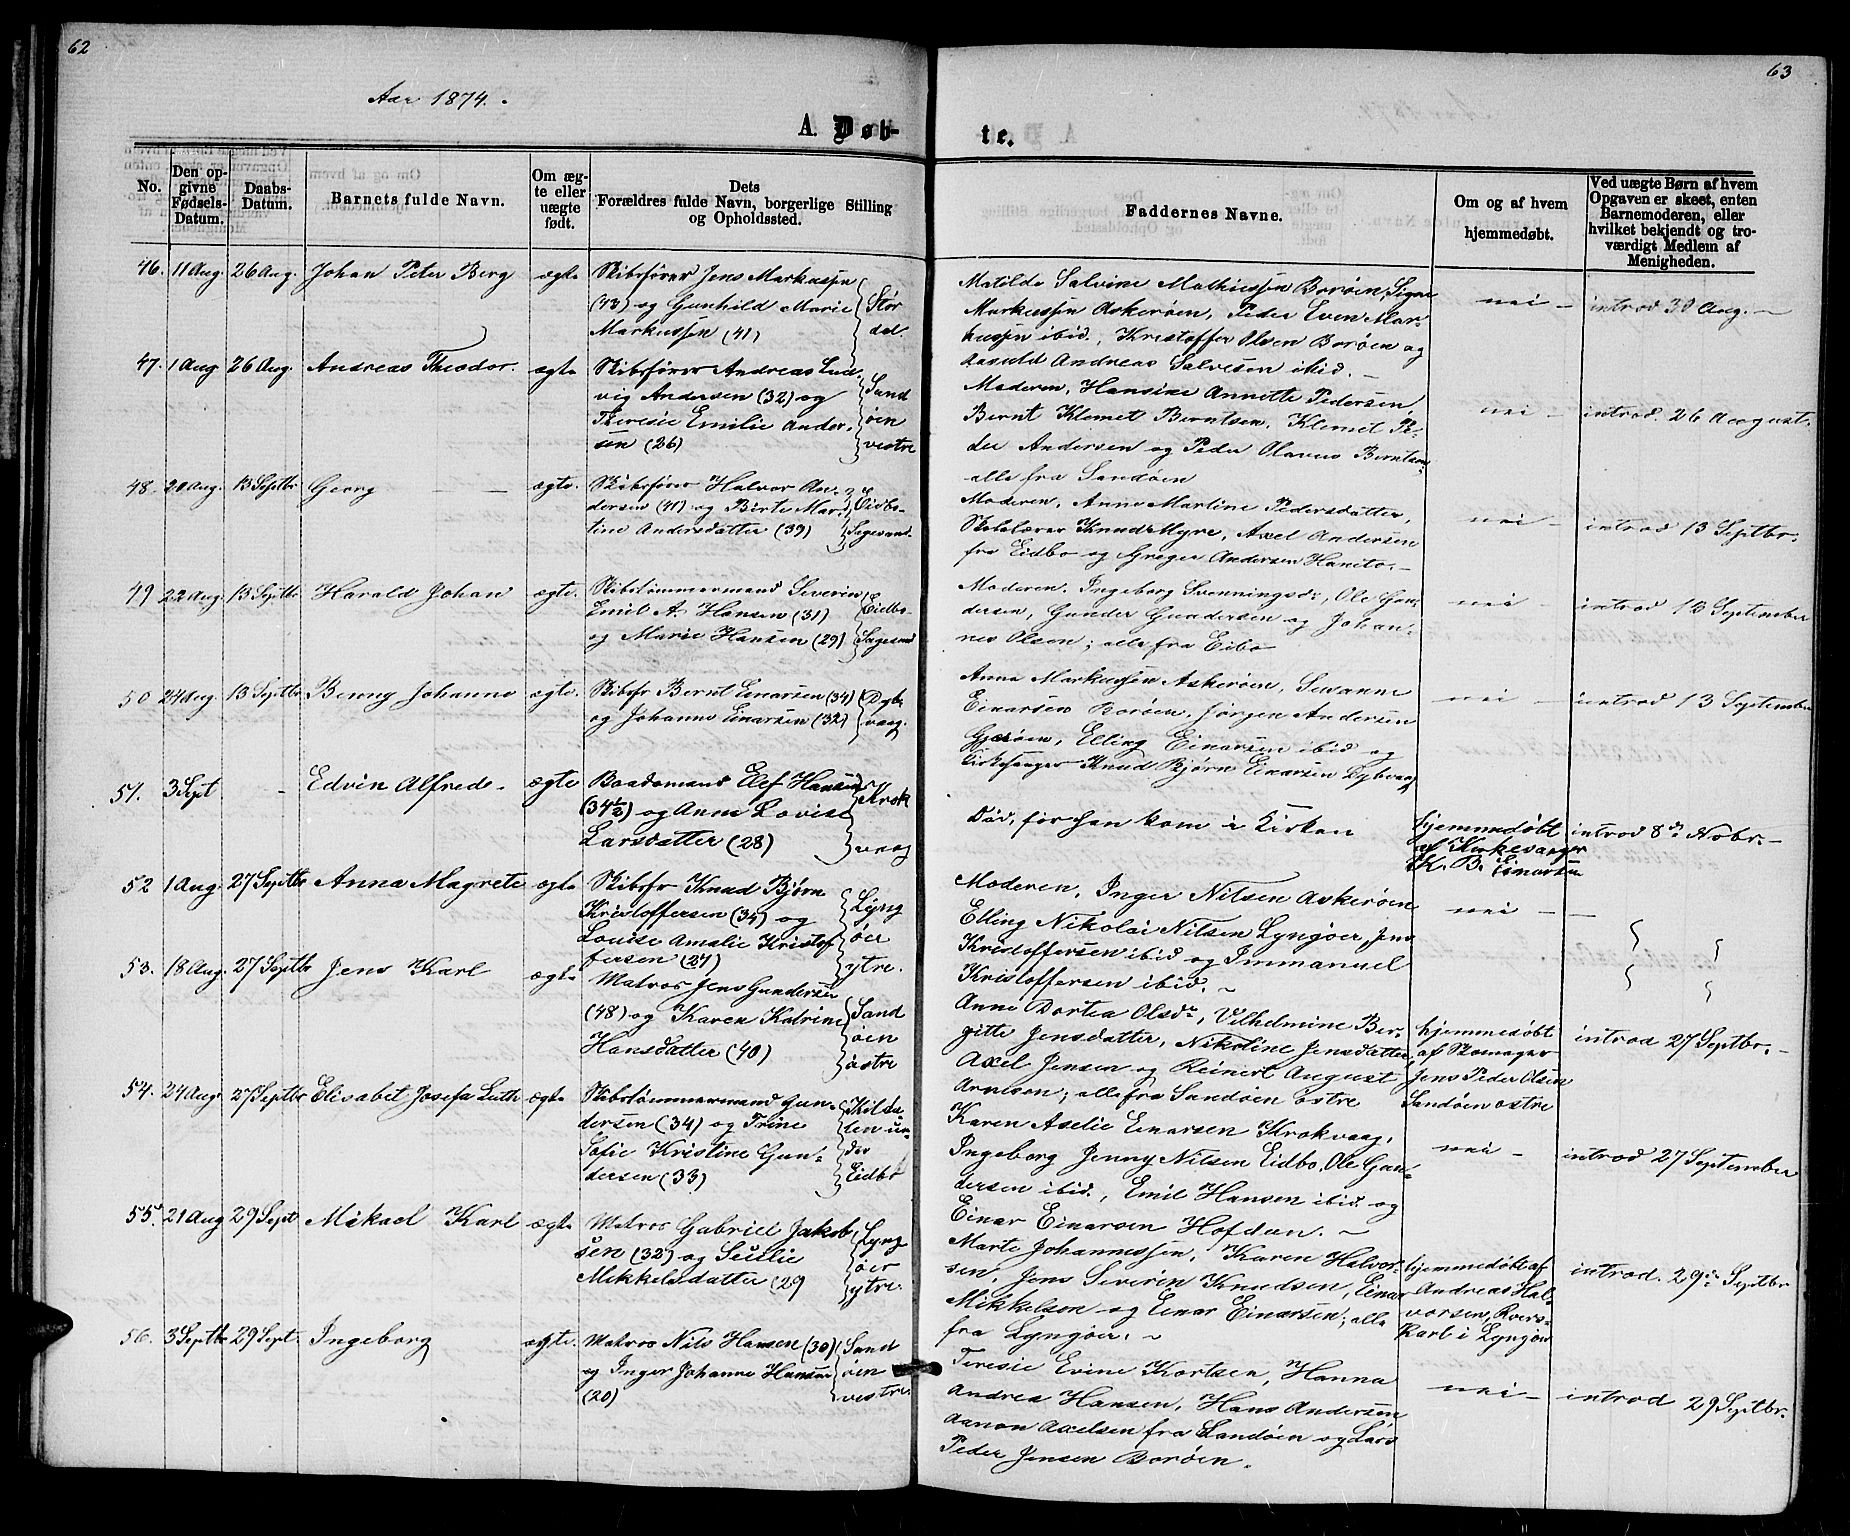 62
63
Aar 1874.
A. Døb-
te.
No.
Den opgivne Fødsels-Datum.
Daabs-Datum.
Barnets fulde Navn.
Om ægte eller uægte født.
Dets Forældres fulde Navn, borgerlige Stilling og Opholdssted.
Faddernes Navne.
Om og af hvem hjemmedøbt.
Ved uægte Børn af hvem Opgaven er skeet, enten Barnemoderen, eller hvilket bekjendt og troværdigt Medlem af Menigheden.
46. 11 Aug. 26 Aug. Johan Peter Berg ægte
Skibsfører Jens Markussen
(43) og Gunhild Marie
Markussen (41)
Stør
dal.
Matilde Salvine Mathiessen Borøen, Signe
Markussen Askerøen, Peder Even Mar-
kussen ibid., Kristoffer Olsen Borøen og
Aasuld Andreas Salvesen ibid. –
nei –
introd 30 Aug. –
47. 1 Aug. 26 Aug. Andreas Theodor. ægte
Skibsfører Andreas Lud-
vig Andersen (32) og
Theresie Emilie Ander-
sen (26)
Sand
øen
vestre
Moderen, Hansine Annette Pedersen,
Bernt Klemet Berntsen, Klemet Pe-
der Andersen og Peder Olaves Berntsen
alle fra Sandøen
nei –
introd. 26 August.
48. 20 Aug. 13 Septbr Georg – ægte.
Skibsfører Halvor An-
dersen (41) og Birte Mar-
tine Andersdatter (39)
Eidbo
Sagesund.
Moderen, Anne Martine Pedersdatter,
Skolelærer Knud Myre, Axel Andersen
fra Eidbo og Greger Andersen Hanto. –
nei –
introd 13 Septbr.
49 22 Aug. 13 Septbr Harald Johan ægte.
Skibstømmermand Severin
Emil A. Hansen (31)
og Marie Hansen (29)
Eidbo
Sagesund
Moderen. Ingeborg Svenningsd:, Ole Gun-
dersen, Gunder Gundersen og Johan-
nes Olsen; alle fra Eibo
nei –
introd 13 September
50 24 Aug. 13 Septbr Benny Johanne ægte.
Skibsfr Bernt Einarsen (34)
og Johanne Einarsen (32)
Dyb-
vaag.
Anna Markussen Askerøen, Susanne
Einarsen Borøen, Jørgen Andersen
Gjerøen, Elling Einarsen ibid og
Kirkesanger Knud Bjørn Einarsen Dybvaag
nei –
introd 13 September
51. 3 Sept – Edvin Alfred. ægte
Baadsmand Elef Hansen
(34½) og Anne Lovise
Larsdatter (28)
Krok
vaag
Død, før han kom i Kirken
hjemmedøbt
af Kirkesanger
K. B. Einarsen
introd 8de Nobr. –
52 1 Aug. 27 Septbr Anna Magrete ægte
Skibsfr Knud Bjørn
Kristoffersen (34) og
Louise Amalie Kristof
fersen (27)
Lyng
øer
ytre.
Moderen, Inger Nilsen Askerøen
Elling Nikolai Nilsen Lyngøer, Jens
Kristoffersen ibid og Immanuel
Kristoffersen ibid. –
nei –
53. 18 Aug. 27 Septbr Jens Karl ægte
Matros Jens Gundersen
(48) og Karen Katrine
Hansdatter (40)
Sand
øen
østre
Anne Dortea Olsdr, Vilhelmine Ber-
gitte Jensdatter, Nikoline Jensdatter,
Axel Jensen og Reinert August
Arntsen; alle fra Sandøen østre
hjemmedøbt
af Skomager
Jens Peder Olsen
Sandøen østre
introd 27 Septbr. –
54. 24 Aug. 27 Septbr Elisabet Josefa Luth ægte
Skibstømmermand Gun-
dersen (34) og Trine
Sofie Kristine Gun-
dersen (33)
Kilda-
len un-
der
Eidbo
Karen Aselie Einarsen Krokvaag,
Ingeborg Jenny Nilsen Eidbo, Ole Gun-
dersen ibid., Emil Hansen ibid og
Einar Einarsen Hofdan. –
nei –
introd 27 September
55. 21 Aug 29 Sept Mikael Karl ægte
Matros Gabriel Jakob-
sen (32) og Secilie
Mikkelsdatter (29
Lyng
øer
ytre.
Marte Johannessen, Karen Halvor-
sen, Jens Severin Knudsen, Einar
Mikkelsen og Einar Einarsen; alle
fra Lyngøer. –
hjemmedøbt af
Andreas Hal-
vorsen, Kvers-
karl i Lyngør
introd. 29de Septbr
56. 3 Septbr 29 Sept. Ingeborg ægte.
Matros Nils Hansen (30)
og Inger Johanne Hansen
(20)
Sand
øen
vestre.
Teresie Evine Karlsen, Hanna
Andrea Hansen, Hans Andersen
Aanon Axelsen fra Sandøen og Lars
Peder Jensen Borøen.
nei –
introd 29 Septbr.